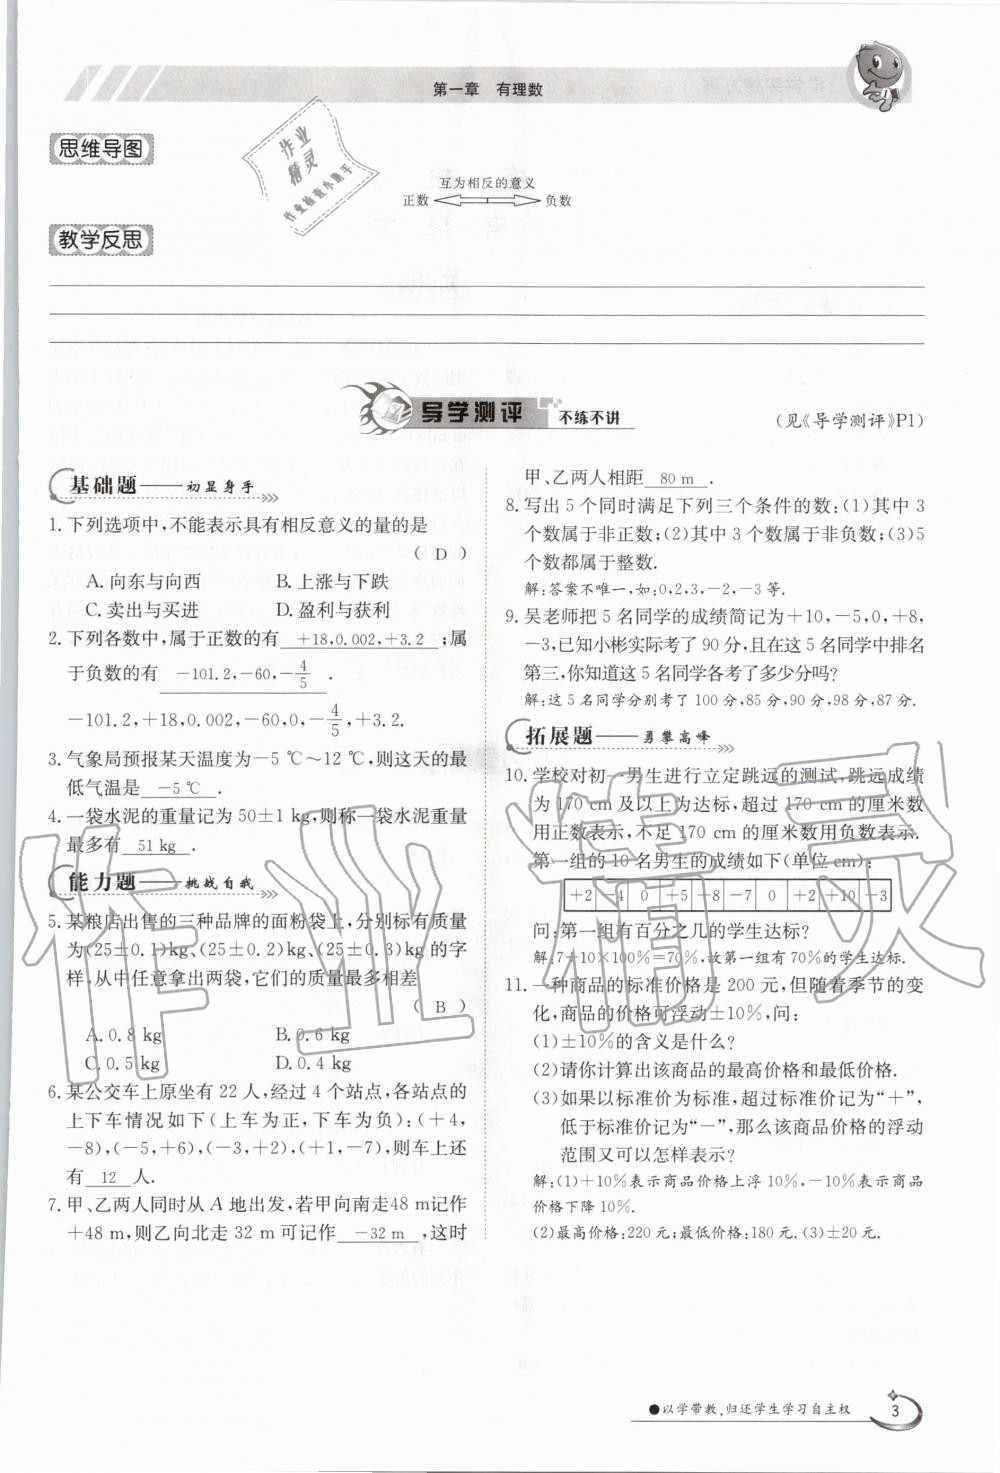 第一章　有理数
思维导图
互为相反的意义
正数　负数
教学反思
导学测评　不练不讲
(见《导学测评》P1)
基础题——初显身手
1.下列选项中,不能表示具有相反意义的量的是
( D )
A.向东与向西　B.上涨与下跌
C.卖出与买进　D.盈利与获利
2.下列各数中,属于正数的有 +18,0.002,+3.2 ;属
于负数的有 −101.2,−60,−4/5 .
−101.2,+18,0.002,−60,0,−4/5,+3.2.
3.气象局预报某天温度为−5 ℃～12 ℃,则这天的最
低气温是 −5 ℃ .
4.一袋水泥的重量记为 50±1 kg,则称一袋水泥重量
最多有 51 kg .
能力题——挑战自我
5.某粮店出售的三种品牌的面粉袋上,分别标有质量
为(25±0.1)kg、(25±0.2)kg、(25±0.3)kg 的字
样,从中任意拿出两袋,它们的质量最多相差
( B )
A.0.8 kg　B.0.6 kg
C.0.5 kg　D.0.4 kg
6.某公交车上原坐有 22 人,经过 4 个站点,各站点的
上下车情况如下(上车为正,下车为负):(+4,
−8),(−5,+6),(−3,+2),(+1,−7),则车上还
有 12 人.
7.甲、乙两人同时从 A 地出发,若甲向南走48 m记作
+48 m,则乙向北走 32 m 可记作 −32 m ,这时
甲、乙两人相距 80 m .
8.写出 5 个同时满足下列三个条件的数:(1)其中 3
个数属于非正数;(2)其中 3 个数属于非负数;(3)5
个数都属于整数.
解:答案不唯一,如:0,2,3,−2,−3等.
9.吴老师把 5 名同学的成绩简记为+10,−5,0,+8,
−3,已知小彬实际考了 90 分,且在这 5 名同学中排名
第三,你知道这 5 名同学各考了多少分吗?
解:这 5 名同学分别考了 100 分,85 分,90 分,98 分,87 分.
拓展题——勇攀高峰
10.学校对初一男生进行立定跳远的测试,跳远成绩
为 170 cm 及以上为达标,超过 170 cm 的厘米数
用正数表示,不足 170 cm 的厘米数用负数表示.
第一组的 10 名男生的成绩如下(单位 cm):
+2　−4　0　+5　+8　−7　0　+2　+10　−3
问:第一组有百分之几的学生达标?
解:7÷10×100%=70%,故第一组有 70%的学生达标.
11.一种商品的标准价格是 200 元,但随着季节的变
化,商品的价格可浮动±10%,问:
(1)±10%的含义是什么?
(2)请你计算出该商品的最高价格和最低价格.
(3)如果以标准价为标准,超过标准价记为“+”,
低于标准价记为“−”,那么该商品价格的浮动
范围又可以怎样表示?
解:(1)+10%表示商品价格上浮 10%,−10%表示商品
价格下降 10%.
(2)最高价格:220 元;最低价格:180 元.(3)±20 元.
●以学带教,归还学生学习自主权　3
作业精灵
作业
精灵
作业检查小助手